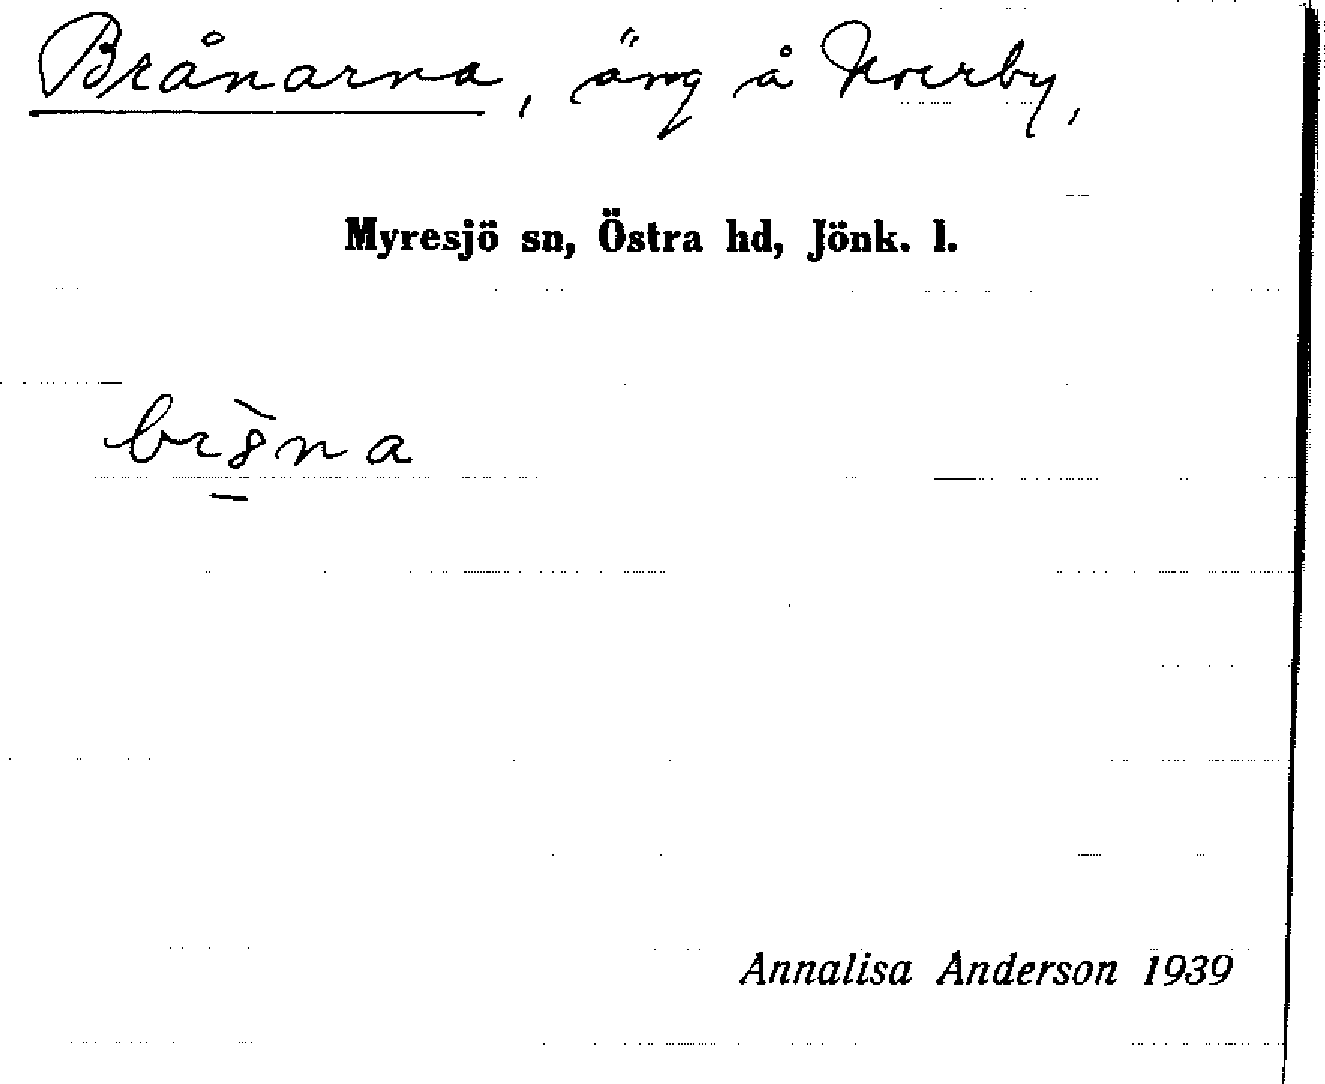 Brånarna, äng å Norrby,
Myresjö sn, Östra hd, Jönk. l.
br8̀na
Annalisa Anderson 1939